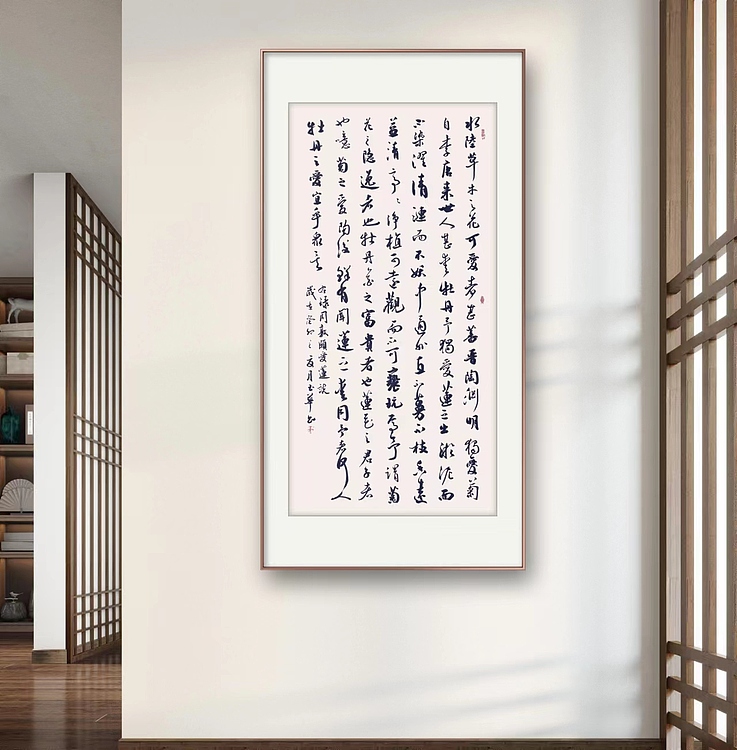 水陸草木之花可愛者甚蕃晋陶渊明獨愛菊
自李唐来世人甚爱牡丹予獨愛蓮之出淤泥而
不染濯清漣而不妖中通外直不蔓不枝香遠
益清亭々淨植可遠觀而不可褻玩焉予謂菊
花之隐逸者也牡丹花之富貴者也蓮花之君子者
也噫菊之爱陶後鲜有聞蓮之爱同予者何人
牡丹之愛宜乎衆矣
右录周敦頤愛蓮説
歲在癸卯之夏月